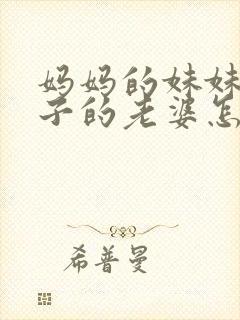 妈妈的妹妹
子的老婆怎
希普曼